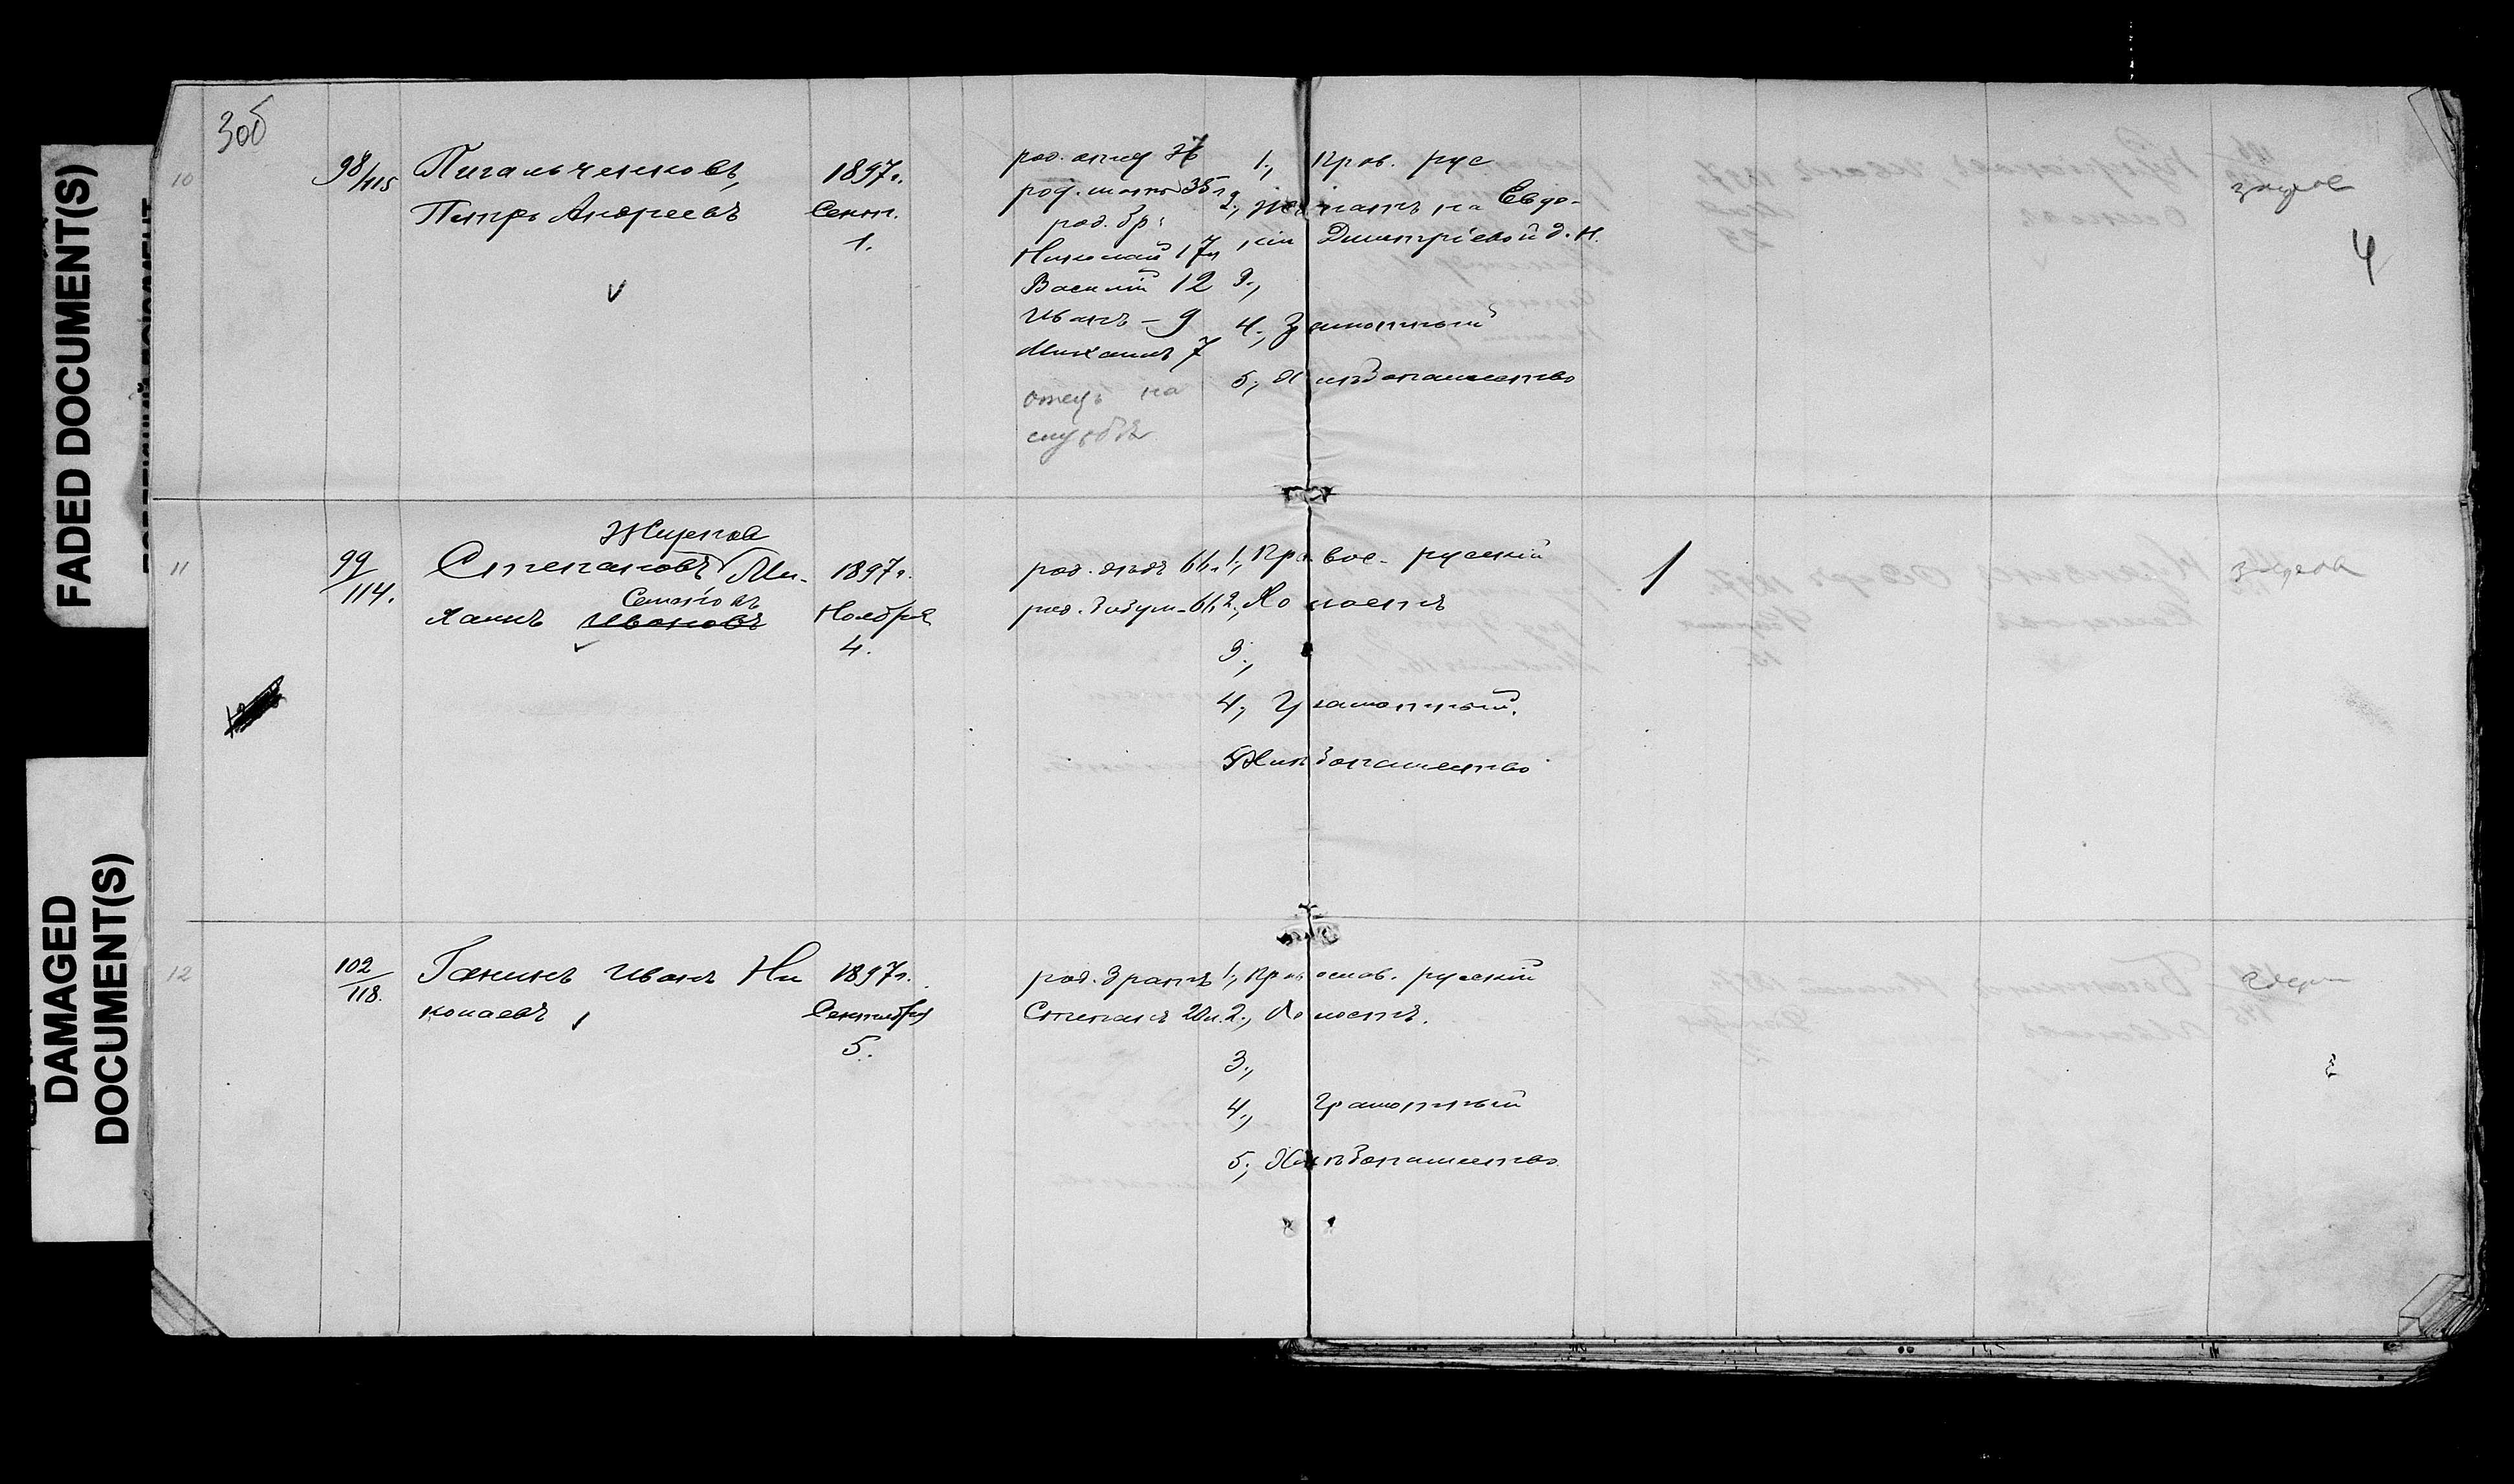 FADED DOCUMENT(S)
DAMAGED
DOCUMENT(S)
3об
10
98/115
Пигальченковъ,
Петръ Андреевъ
1897г.
Сент.
1.
род. отец
род. мать 35 г
род. бр:
Николай 17л
Василій 12
Иванъ – 9
Михаилъ 7
отецъ на
службѣ
1., Прав. рус
2., женатъ на Евдо-
кіи Дмитріевой д. Н.
3.,
4., Грамотный
5., Хлѣбопашество
4
11
99/114.
Степановъ Ми-
хаилъ Ивановъ
1897г.
Ноября
4.
род. дѣдъ
род. бабуш.
1., Правос. русскій
2., Холостъ
3.,
4., Грамотный.
5 Хлѣбопашество
1
12
102/118.
Ганинъ Иванъ Ни
колаевъ
1897г.
Сентября
5.
род. братъ
Степанъ 20л.
1., Правослов. русскій
2., Холостъ.
3.,
4., Грамотный
5., Хлѣбопашество